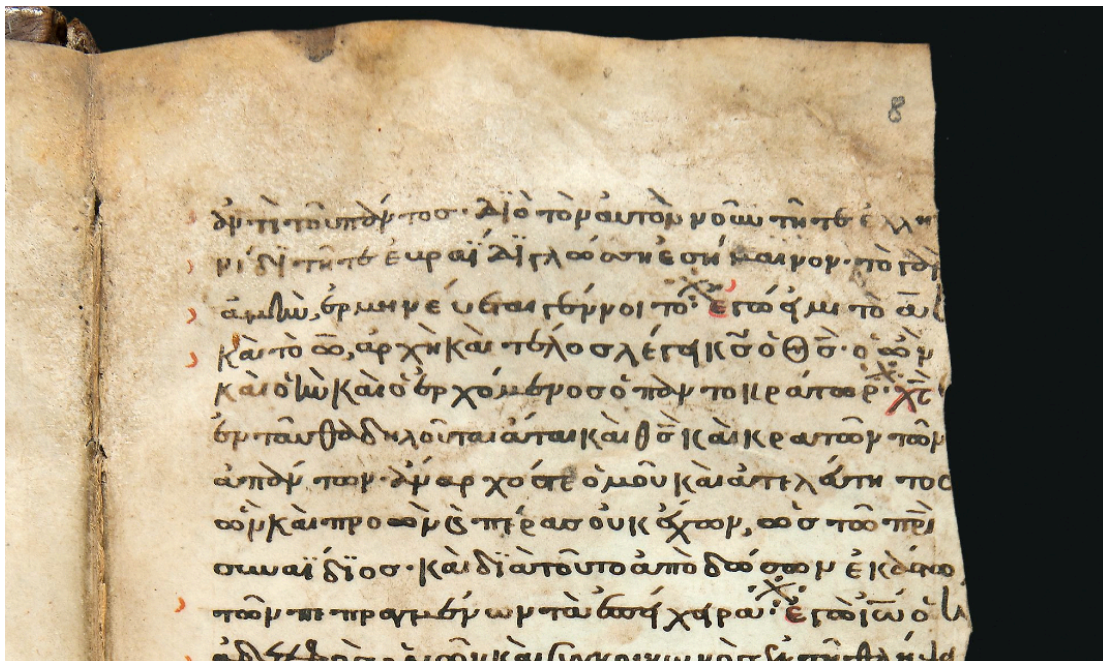 ἀντὶ τοῦ πάντοσ· Διὸ τὸν αὐτὸν νοῦν τῆ τε ἑλλη
νίδϊ τῆ τε ἑβραϊδϊ γλώσση ἐσήμαινον· τὸ γὰρ
ἀμὴν, ἑρμηνεύεται γένοιτο· Ἐγώ ἠμι τὸ ἄλ
καὶ τὸ ω, ἀρχὴ καὶ τέλοσ λέγει κ̅ς̅ ὁ θ̅ς̅· ὁ ὢν
καὶ ὁ ἦν καὶ ὁ ἐρχόμενοσ ὁ παντοκράτωρ· χ̅ς̅
ἐνταῦθα δηλοῦται ἅται καὶ θ̅ς̅ καὶ κρατῶν τῶν
ἁπάντων· ἄναρχόστε ὁμοῦ καὶ ἀτελεύτητοσ
ὢν καὶ προὼν καὶ πέρασ οὐκ ἔχων, ὡσ τῶ π̅ρ̅ι̅
συναϊδϊοσ· καὶ δϊὰ τοῦτο ἀποδώσων ἑκάστω
τῶν πεπραγμένων τὰ ἐπήχειρα· Ἐγὼ ἰ̅ω̅ ὁ